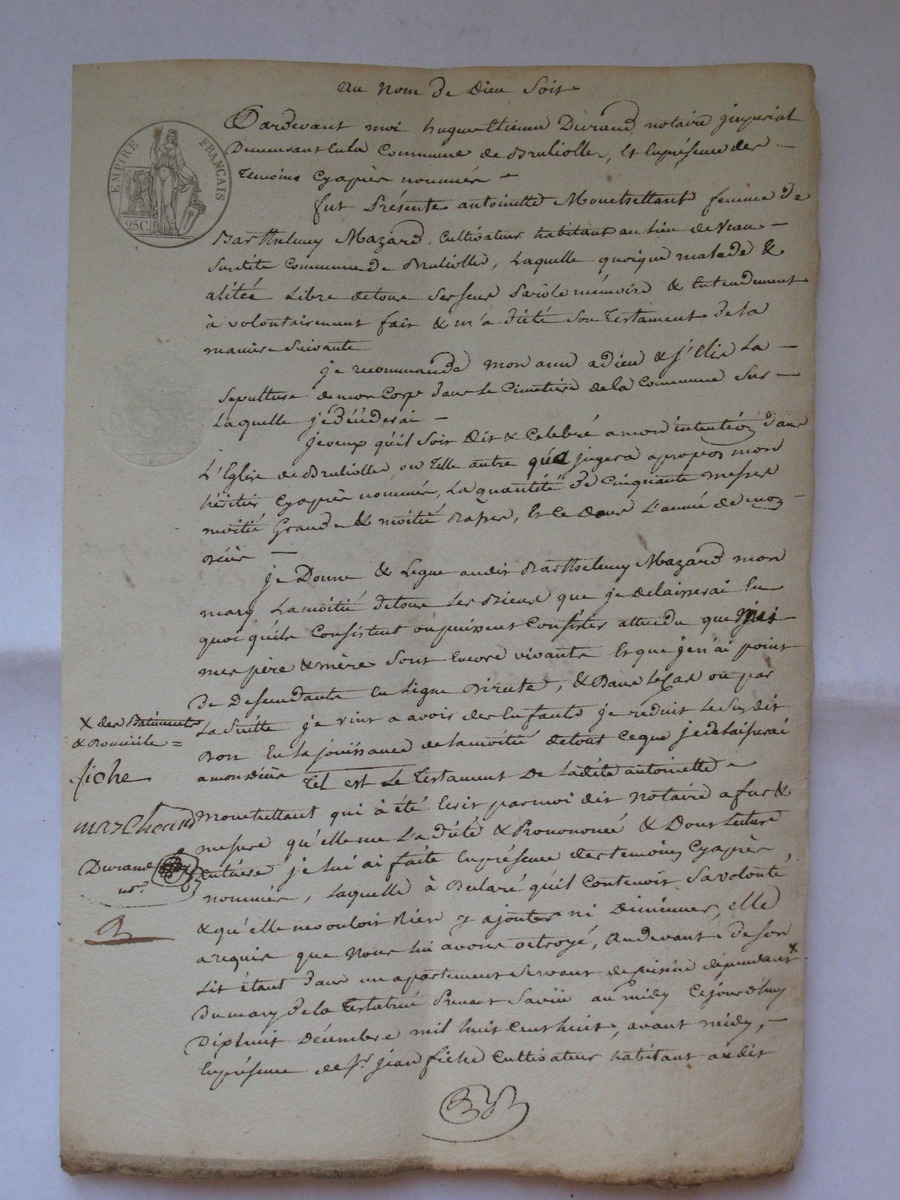 Au Nom de Dieu Soit
EMPIRE FRANÇAIS
25C
Pardevant moi hugue Etienne Durand notaire jmperial
Demeurant En la Commune de Brulliolles, Et En présence des
Temoins Cyaprès nommés
fut Présente antoinette Montellant femme de
Barthselemy Mazard, Cultivateur habitant au Lieu de
Susdite Commune de Brulliolles, Laquelle quoique malade &
alitée Libre de tous Ses Sens Parole mémoire & Entendement
à volontairement fait & m'a dicté Son Testament de la
maniere Suivante
je recommande mon ame a dieu & j'Elis La
Sepulture de mon Corps dans Le Cimetière de la Commune Sur
Laquelle je Décéderai
je veux qu'il Soit Dit & Celebré a mon intention dans
L'Eglise de Brulliolles, ou Telle autre que jugera apropos mon
héritier Cyaprès nommé, La quantité de Cinquante messes
moitié Grandes & moitié Basses, Et Ce Dans L'année de mon
Décès
je Donne & Legue audit Barthselemy Mazard mon
mary La moitié de tous Les Biens que je delaisserai En
quoi qu'ils Consistent ou puissent Consister attendu que
mes père & mère Sont Encore vivants Et que je n'ai point
De Descendants En Ligne Directe, & Dans Le Cas ou par
La Suitte je vint a avoir des Enfants je réduit Le Susdit
Don En La jouissance de la moitié de tout Ce que je delaisserai
a mon décès Tel est Le Testament De Ladite antoinette
Montellant qui à été Ecrit par moi dit Notaire a fur &
mesure qu'elle me L'a dicté & Prononcé & Dont Lecture
Entière je lui ai faite En présence des temoins Cyaprès
nommés, Laquelle à Declaré qu'il Contenoit Sa volonté
& qu'elle ne vouloit Rien y ajouter ni Diminuer, elle
a requis acte que Nous Lui avons octroyé, au devant de Son
Lit étant dans un apartement Servant de Cuisine dépendant x
Du mary de la Testatrice Prenant au midy Cejourd'huy
Dixhuit Décembre mil huit Cent huit, avant midy,
En présence de Sr. jean fiche Cultivateur habitant audit
x des Batiments
& Domicile =
fiche
marchand
Durand